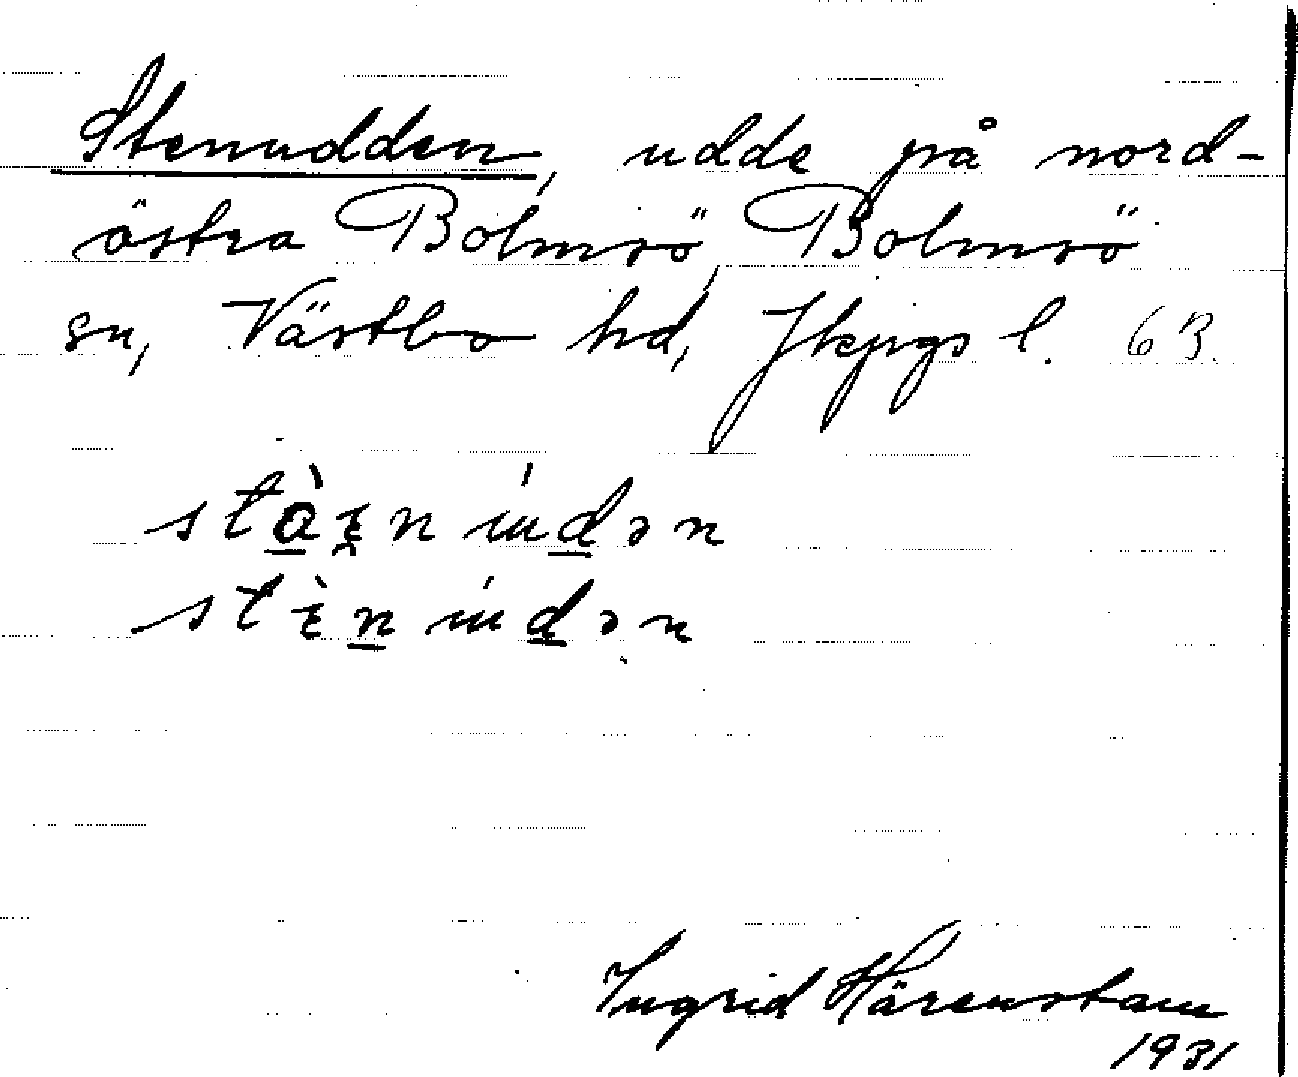 Stenudden, udde på nord-
östra Bolmsö, Bolmsö
sn, Västbo hd, Jkpgs l. 63.
Ingrid Härenstam
1931